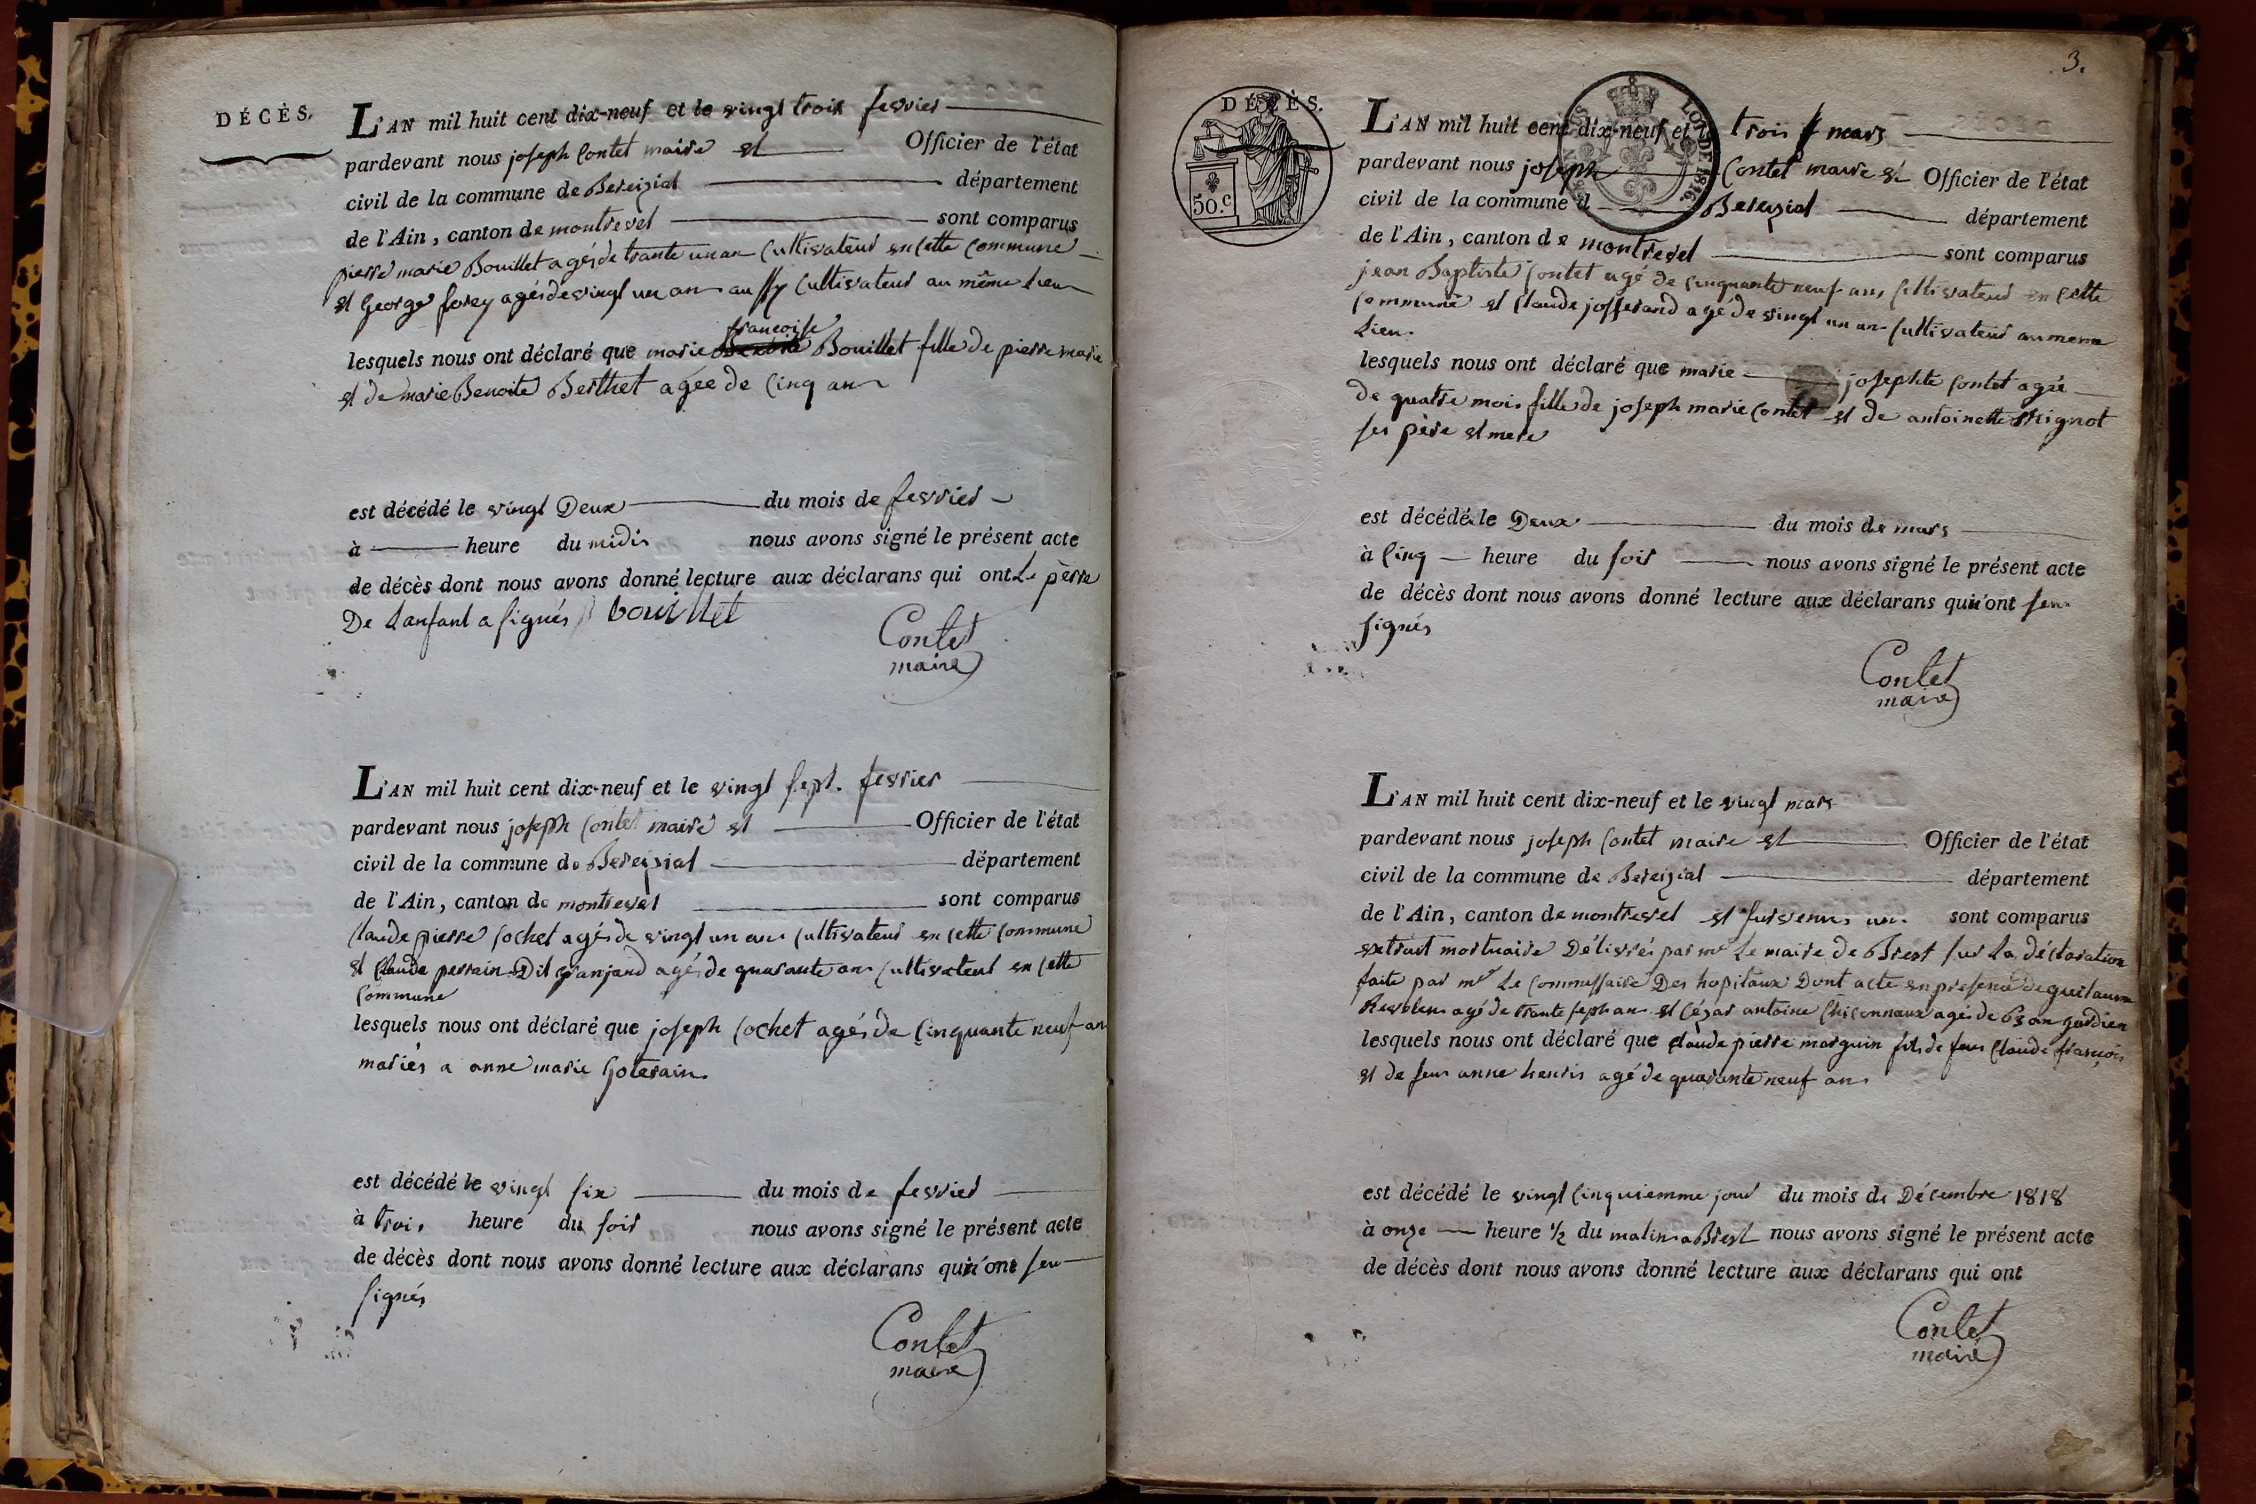 DÉCÈS.
L'AN mil huit cent dix-neuf et le vingt trois fevrier
pardevant nous joseph Contet maire et Officier de l'état
civil de la commune de Bereizial département
de l'Ain, canton de montrevel sont comparus
pierre marie Bouillet agés de trante un an Cultivateur en cette Commune
et George forey agés de vingt un an aussy Cultivateur au même lieu
francoise
lesquels nous ont déclaré que marie Benoite Bouillet fille de pierre marie
et de marie Benoite Berthet agée de Cinq ans
est décédé le vingt Deux du mois de fevrier
à heure du midis nous avons signé le présent acte
de décès dont nous avons donné lecture aux déclarans qui ont Le père
De Lanfant a signés bouillet
Contet
maire
L'AN mil huit cent dix-neuf et le vingt sept. fevrier
pardevant nous joseph Contet maire et Officier de l'état
civil de la commune de Bereizial département
de l'Ain, canton de montrevel sont comparus
Claude pierre Cochet agés de vingt un ans Cultivateur en cette Commune
et Claude perrain Dit granjand agés de quarante ans Cultivateur en cette
Commune
lesquels nous ont déclaré que joseph Cochet agés de Cinquante neuf an
mariés a anne marie Goterain
est décédé le vingt six du mois de fevrier
à trois heure du soir nous avons signé le présent acte
de décès dont nous avons donné lecture aux déclarans qui n'ont seu
signés
Contet
maire
3.
DÉCÈS.
50.c
LOI DE 1816.
L'AN mil huit cent dix-neuf et le trois mars
pardevant nous joseph Contet maire et Officier de l'état
civil de la commune d Bereizial département
de l'Ain, canton de montrevel sont comparus
jean Baptiste Contet agé de Cinquante neuf ans Cultivateur en Cette
Commune et Claude josserand agé de vingt un an Cultivateur au meme
Lieu.
lesquels nous ont déclaré que marie josephte Contet agée
de quatre mois fille de joseph marie Contet et de antoinette Mignot
ses père et mere
est décédé le Deux du mois de mars
à Cinq heure du soir nous avons signé le présent acte
de décès dont nous avons donné lecture aux déclarans qui n'ont seu
signés
Contet
maire
L'AN mil huit cent dix-neuf et le vingt mars
pardevant nous joseph Contet maire et Officier de l'état
civil de la commune de Bereizial département
de l'Ain, canton de montrevel et survenus un sont comparus
extrait mortuaire Délivrés par mr Le maire de Brest sur La déclaration
faite par mr Le Commissaire Des hopitaux Dont acte en presence de guilaume
agé de trante sept an et César antoine agés de 63 an gardien
lesquels nous ont déclaré que claude pierre marguin fils de feu Claude francois
et de feu anne henris agé de quarante neuf ans
est décédé le vingt Cinquiemme jour du mois de Décembre 1818
à onze heure ½ du matin a Brest nous avons signé le présent acte
de décès dont nous avons donné lecture aux déclarans qui ont
Contet
maire